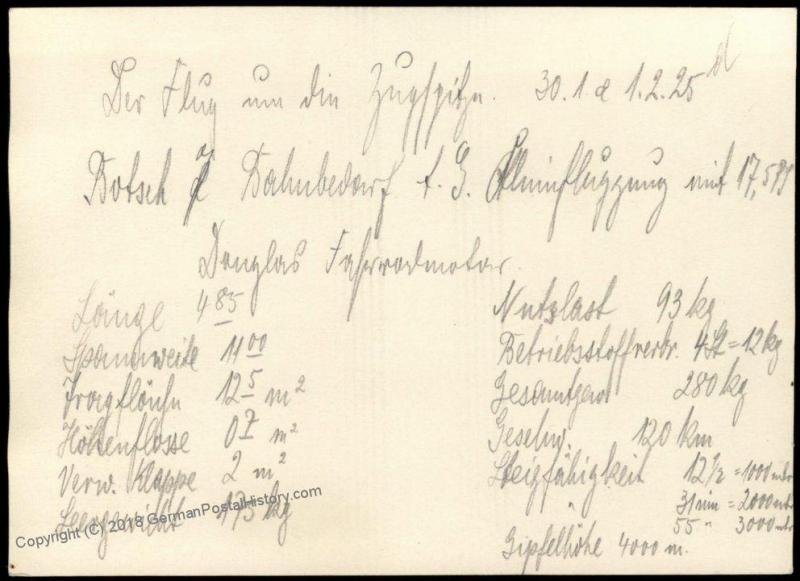 Der Flug um die Zugspitze. 30.1 & 1.2.25
Botsch Bahnbedarf A.G. Kleinflugzeug mit 17,5 PS
Douglas Fahrradmotor.
Länge 4 85
Spannweite 11 00
Tragfläche 12 5 m²
Höhenflosse 0 7 m²
Verw. Klappe 2 m²
Leergewicht 175 kg
Nutzlast 93 kg
Betriebsstoffverbr. 4 St = 12 kg
Gesamtgew 280 kg
Geschw. 120 km
Steigfähigkeit 12 1/2 = 1000 mtr
" 31 min = 2000 mtr
55 " 3000 mtr
Gipfelhöhe 4000 m.
Copyright (C) 2018 GermanPostalHistory.com